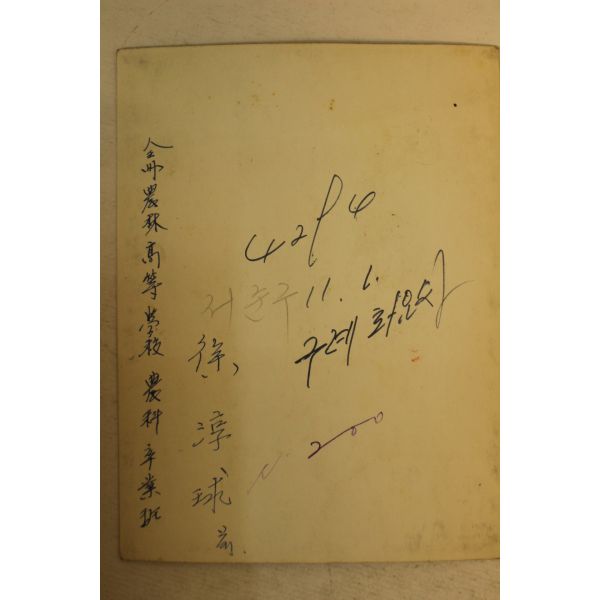 全州農林高等學校 農科 卒業班
4294
서순구
11. 1.
구례 화엄사
徐淳球 前.
200